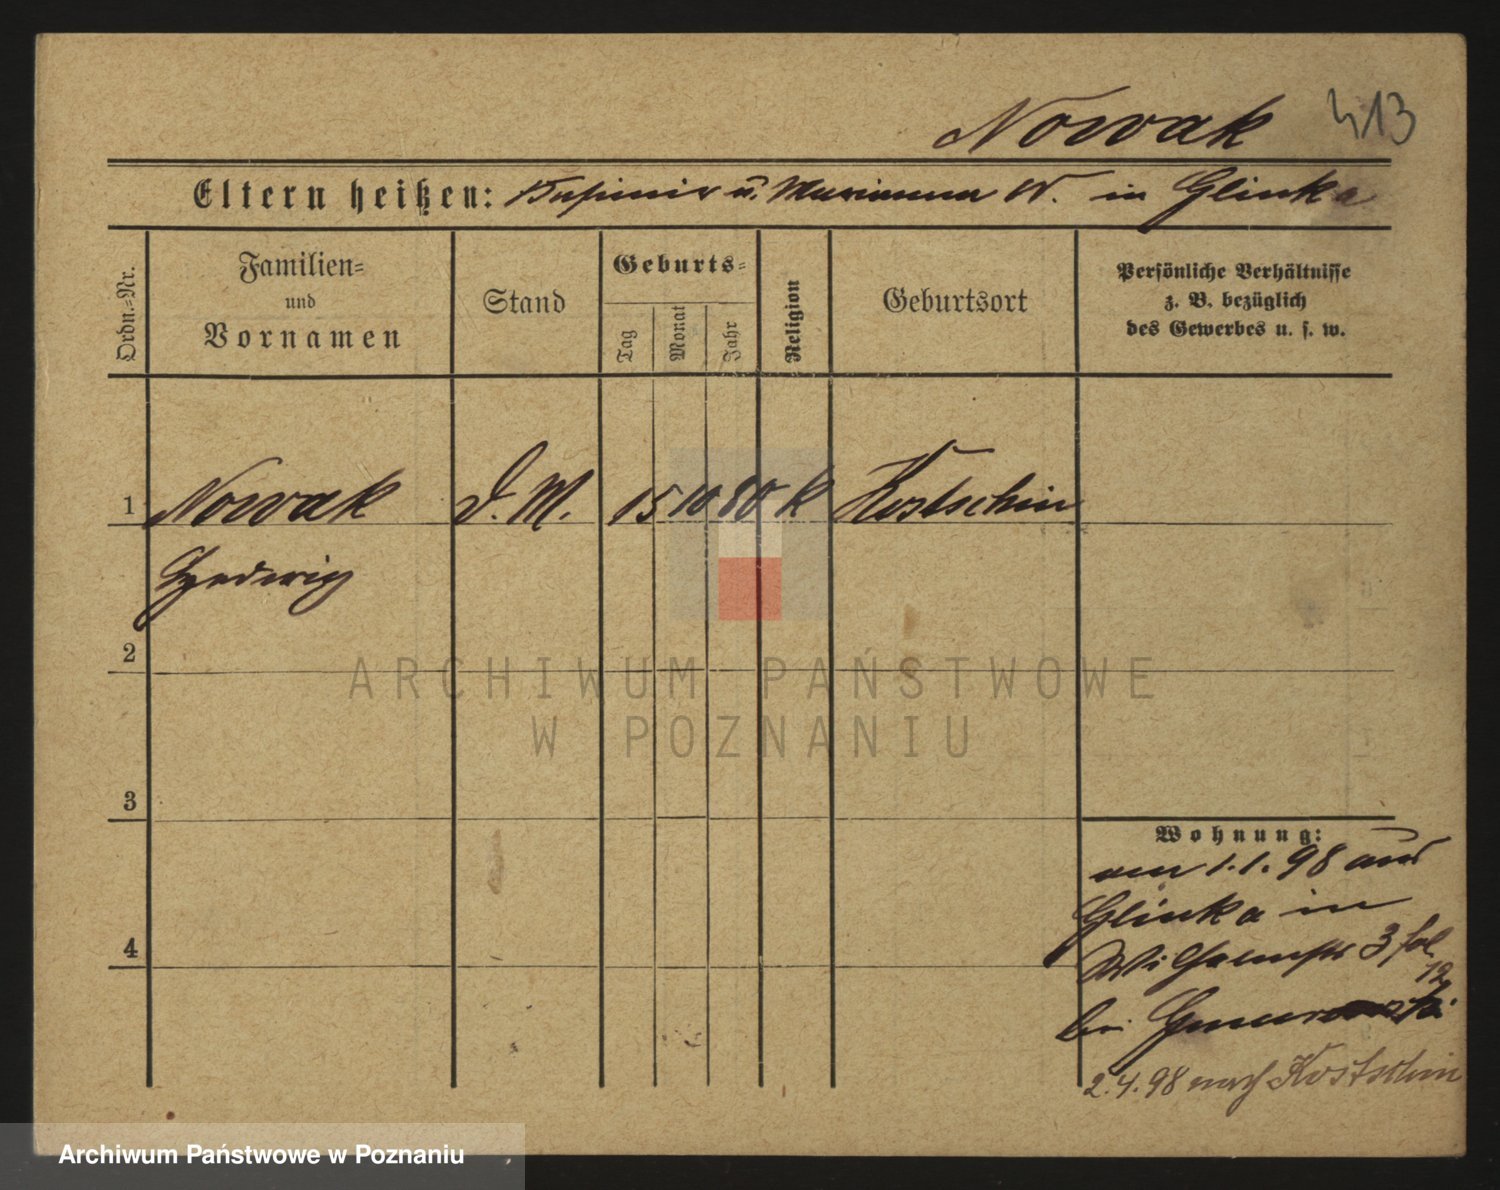 Nowak 413
Eltern heißen: Kasimir u. Marianna N. in Glinka
Ordn.-Nr.
Familien-
und
Vornamen
Stand
Geburts-
Tag
Monat
Jahr
Religion
Geburtsort
Persönliche Verhältnisse
z. B. bezüglich
des Gewerbes u. s. w.
1 Nowak D. M. 15 10 80 K Kostschin
Hedwig
2
3
4
Wohnung:
am 1.1.98 aus
Glinka in
Wilhelmstr 3
12
bei
2.4.98 nach Kostschin
ARCHIWUM PAŃSTWOWE
W POZNANIU
Archiwum Państwowe w Poznaniu